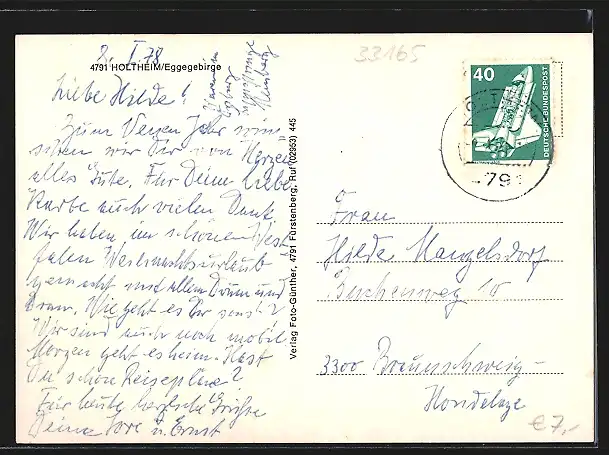 2. I. 78
4791 HOLTHEIM/Eggegebirge
Liebe Hilde!
Zum Neuen Jahr wün-
schen wir Dir von Herzen
alles Gute. Für Deine liebe
Karte auch vielen Dank.
Wir haben im schönen West-
falen Weihnachtsurlaub
gemacht mit allem Drum und
Dran. Wie geht es Dir sonst?
Wir sind auch noch mobil
Morgen geht es heim. Hast
Du schon Reisepläne?
Für heute herzliche Grüsse
Deine Lore u. Ernst
Verlag Foto-Günther, 4791 Fürstenberg, Ruf (02953) 445
33165
40
DEUTSCHE BUNDESPOST
479
Frau
Hilde Mangelsdorf
Birkenweg 10
3300 Braunschweig-
Hondelage
€7,-